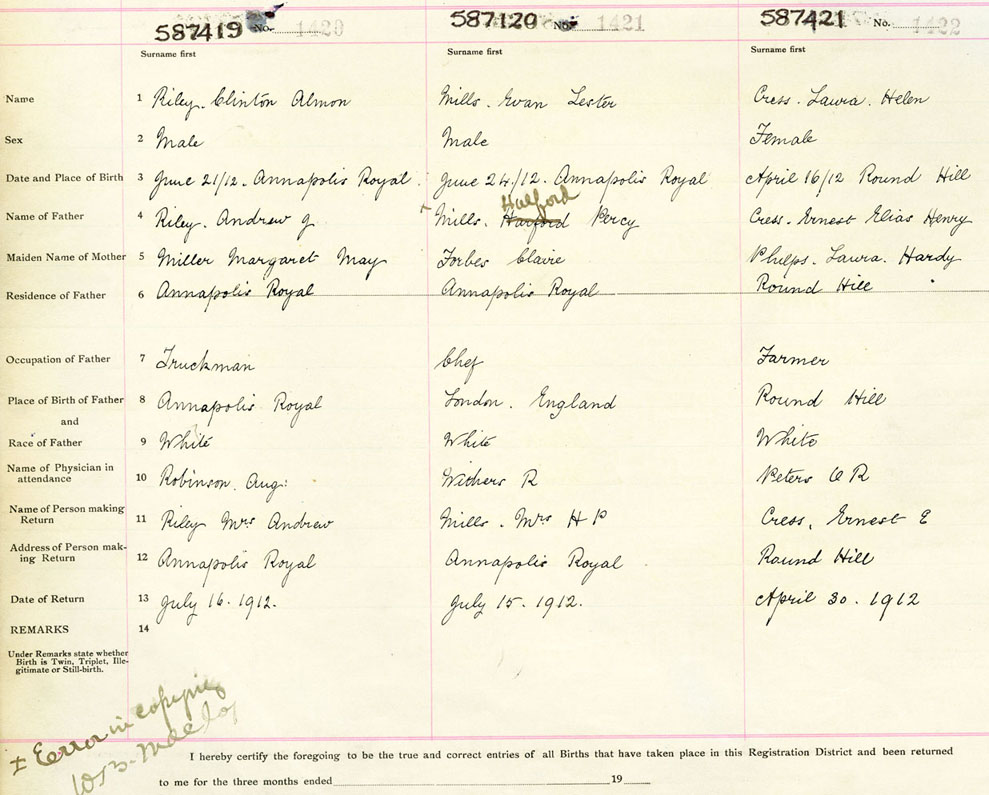 587419 No. 1420 587420 No. 1421 587421 No. 1422
Surname first Surname first Surname first
Name 1 Riley. Clinton Almon Mills. Evan Lester Cress. Laura. Helen
Sex 2 Male Male Female
Date and Place of Birth 3 June 21/12. Annapolis Royal. June 24/12. Annapolis Royal April 16/12 Round Hill
Halford
Name of Father 4 Riley. Andrew J. Mills. Harford Percy Cress. Ernest Elias Henry
Maiden Name of Mother 5 Miller Margaret May Forbes Claire Phelps. Laura. Hardy
Residence of Father 6 Annapolis Royal Annapolis Royal Round Hill
Occupation of Father 7 Truckman Chef Farmer
Place of Birth of Father 8 Annapolis Royal London. England Round Hill
and
Race of Father 9 White White White
Name of Physician in
attendance 10 Robinson. Aug: Withers R Peters O R
Name of Person making
Return 11 Riley Mrs Andrew Mills. Mrs H P Cress, Ernest E
Address of Person mak-
ing Return 12 Annapolis Royal Annapolis Royal Round Hill
Date of Return 13 July 16. 1912. July 15. 1912. April 30. 1912
REMARKS 14
Under Remarks state whether
Birth is Twin, Triplet, Ille-
gitimate or Still-birth.
± Error in copying
I hereby certify the foregoing to be the true and correct entries of all Births that have taken place in this Registration District and been returned
to me for the three months ended 19